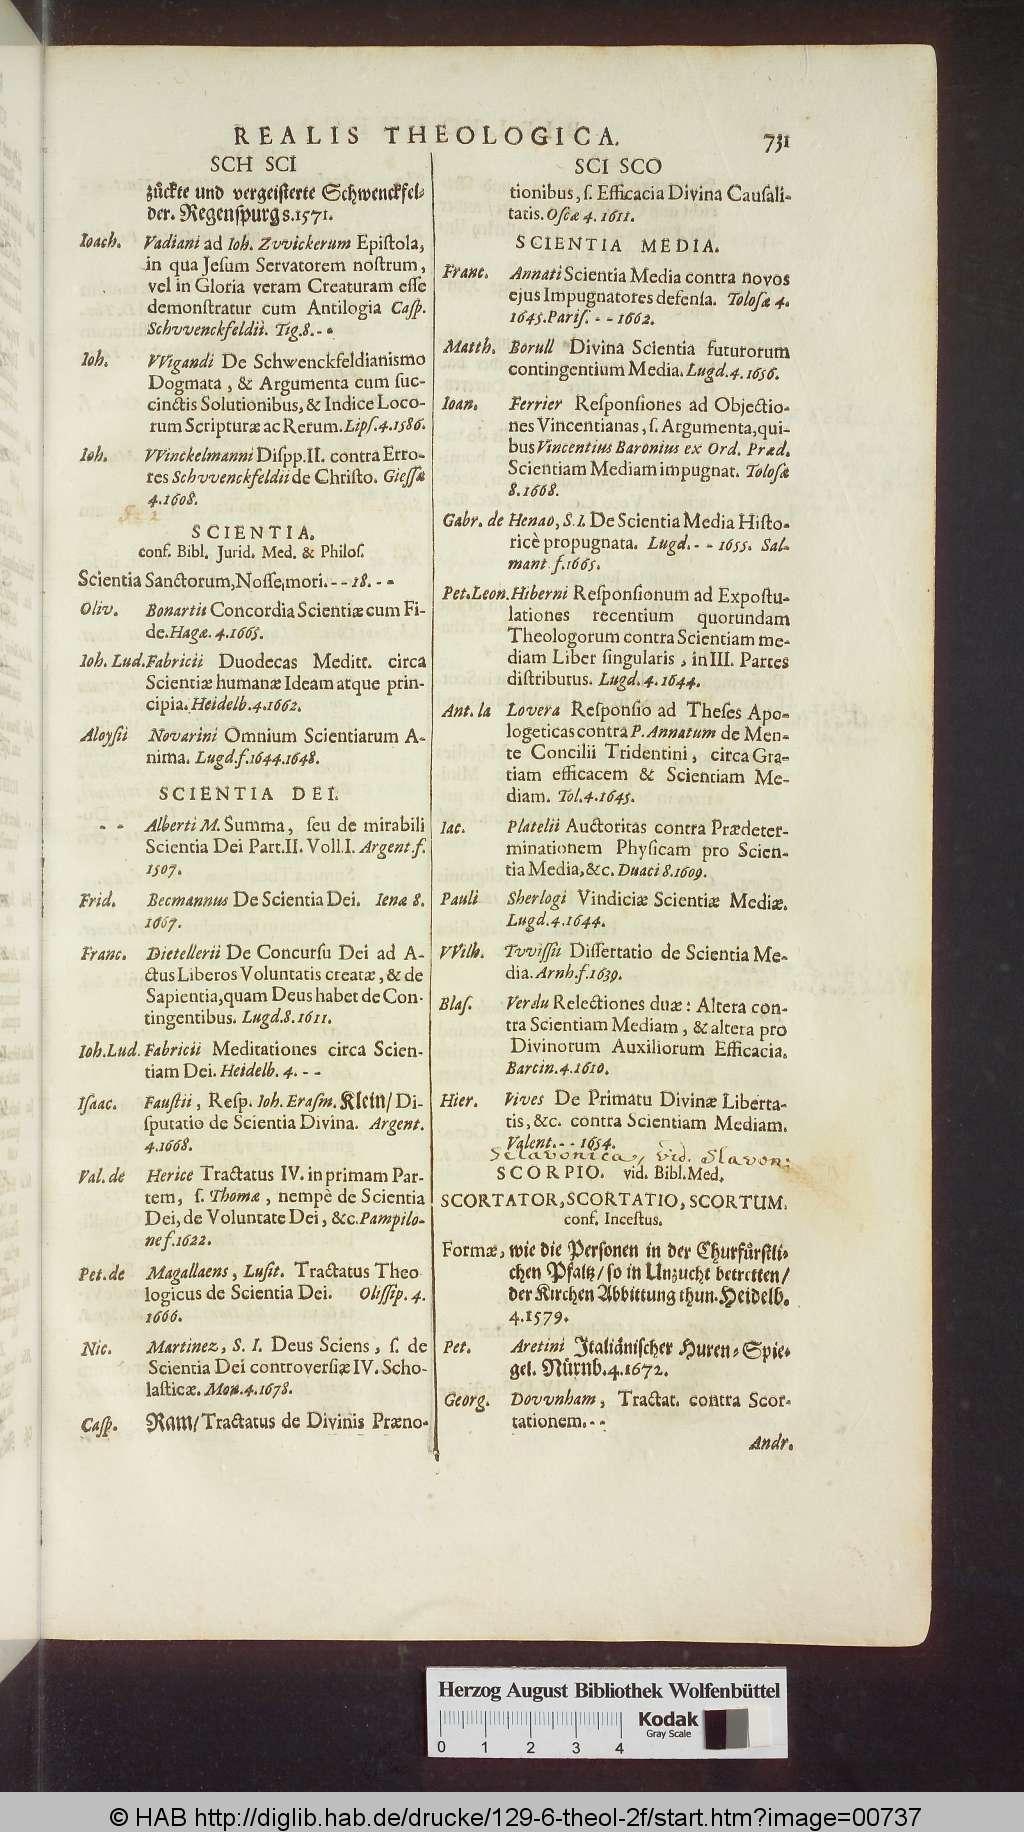 REALIS THEOLOGICA.
731
SCH SCI
zückte und vergeisterte Schwenckfel-
der. Regenspurg 8.1571.
Ioach. Vadiani ad Ioh. Zvvickerum Epistola,
in qua Jesum Servatorem nostrum,
vel in Gloria veram Creaturam esse
demonstratur cum Antilogia Casp.
Schvvenckfeldii. Tig.8.--
Ioh. VVigandi De Schwenckfeldianismo
Dogmata, & Argumenta cum suc-
cinctis Solutionibus, & Indice Loco-
rum Scripturæ ac Rerum. Lips.4.1586.
Ioh. VVinckelmanni Dispp.II. contra Erro-
res Schvvenckfeldii de Christo. Giessæ
4.1608.
SCIENTIA.
conf. Bibl. Jurid. Med. & Philos.
Scientia Sanctorum, Nosse, mori.--18.--
Oliv. Bonartii Concordia Scientiæ cum Fi-
de. Hagæ. 4.1665.
Ioh. Lud. Fabricii Duodecas Meditt. circa
Scientiæ humanæ Ideam atque prin-
cipia. Heidelb.4.1662.
Aloysii Novarini Omnium Scientiarum A-
nima. Lugd.f.1644.1648.
SCIENTIA DEI.
-- Alberti M. Summa, seu de mirabili
Scientia Dei Part.II. Voll.I. Argent.f.
1507.
Frid. Becmannus De Scientia Dei. Ienæ 8.
1667.
Franc. Dietellerii De Concursu Dei ad A-
ctus Liberos Voluntatis creatæ, & de
Sapientia, quam Deus habet de Con-
tingentibus. Lugd.8.1611.
Ioh.Lud. Fabricii Meditationes circa Scien-
tiam Dei. Heidelb. 4.--
Isaac. Faustii, Resp. Ioh. Erasm. Klein/ Di-
sputatio de Scientia Divina. Argent.
4.1668.
Val. de Herice Tractatus IV. in primam Par-
tem, s. Thomæ, nempè de Scientia
Dei, de Voluntate Dei, &c. Pampilo-
ne f.1622.
Pet. de Magallaens, Lusit. Tractatus Theo
logicus de Scientia Dei. Olissip. 4.
1666.
Nic. Martinez, S. I. Deus Sciens, s. de
Scientia Dei controversiæ IV. Scho-
lasticæ. Mon.4.1678.
Casp. Ram/ Tractatus de Divinis Præno-
SCI SCO
tionibus, s. Efficacia Divina Causali-
tatis. Oscæ 4. 1611.
SCIENTIA MEDIA.
Franc. Annati Scientia Media contra novos
ejus Impugnatores defensa. Tolosæ 4.
1645. Paris.--1662.
Matth. Borull Divina Scientia futurorum
contingentium Media. Lugd.4.1656.
Ioan. Ferrier Responsiones ad Objectio-
nes Vincentianas, s. Argumenta, qui-
bus Vincentius Baronius ex Ord. Præd.
Scientiam Mediam impugnat. Tolosæ
8.1668.
Gabr. de Henao, S.I. De Scientia Media Histo-
ricè propugnata. Lugd.--1655. Sal-
mant f.1665.
Pet.Leon. Hiberni Responsionum ad Expostu-
lationes recentium quorundam
Theologorum contra Scientiam me-
diam Liber singularis, in III. Partes
distributus. Lugd.4.1644.
Ant. la Lovera Responsio ad Theses Apo-
logeticas contra P. Annatum de Men-
te Concilii Tridentini, circa Gra-
tiam efficacem & Scientiam Me-
diam. Tol.4.1645.
Iac. Platelii Auctoritas contra Prædeter-
minationem Physicam pro Scien-
tia Media, &c. Duaci 8.1609.
Pauli Sherlogi Vindiciæ Scientiæ Mediæ.
Lugd.4.1644.
VVilh. Tvvissii Dissertatio de Scientia Me-
dia. Arnh.f.1639.
Blas. Verdu Relectiones duæ: Altera con-
tra Scientiam Mediam, & altera pro
Divinorum Auxiliorum Efficacia.
Barcin.4.1610.
Hier. Vives De Primatu Divinæ Liberta-
tis, &c. contra Scientiam Mediam.
Valent.--1654.
Sclavonica, vid. Slavon:
SCORPIO. vid. Bibl. Med.
SCORTATOR, SCORTATIO, SCORTUM.
conf. Incestus.
Formæ, wie die Personen in der Churfürstli-
chen Pfaltz/ so in Unzucht betretten/
der Kirchen Abbittung thun. Heidelb.
4.1579.
Pet. Aretini Italiänischer Huren-Spie-
gel. Nürnb.4.1672.
Georg. Dovvnham, Tractat. contra Scor-
tationem.--
Andr.
Herzog August Bibliothek Wolfenbüttel
Kodak
Gray Scale
0 1 2 3 4
© HAB http://diglib.hab.de/drucke/129-6-theol-2f/start.htm?image=00737